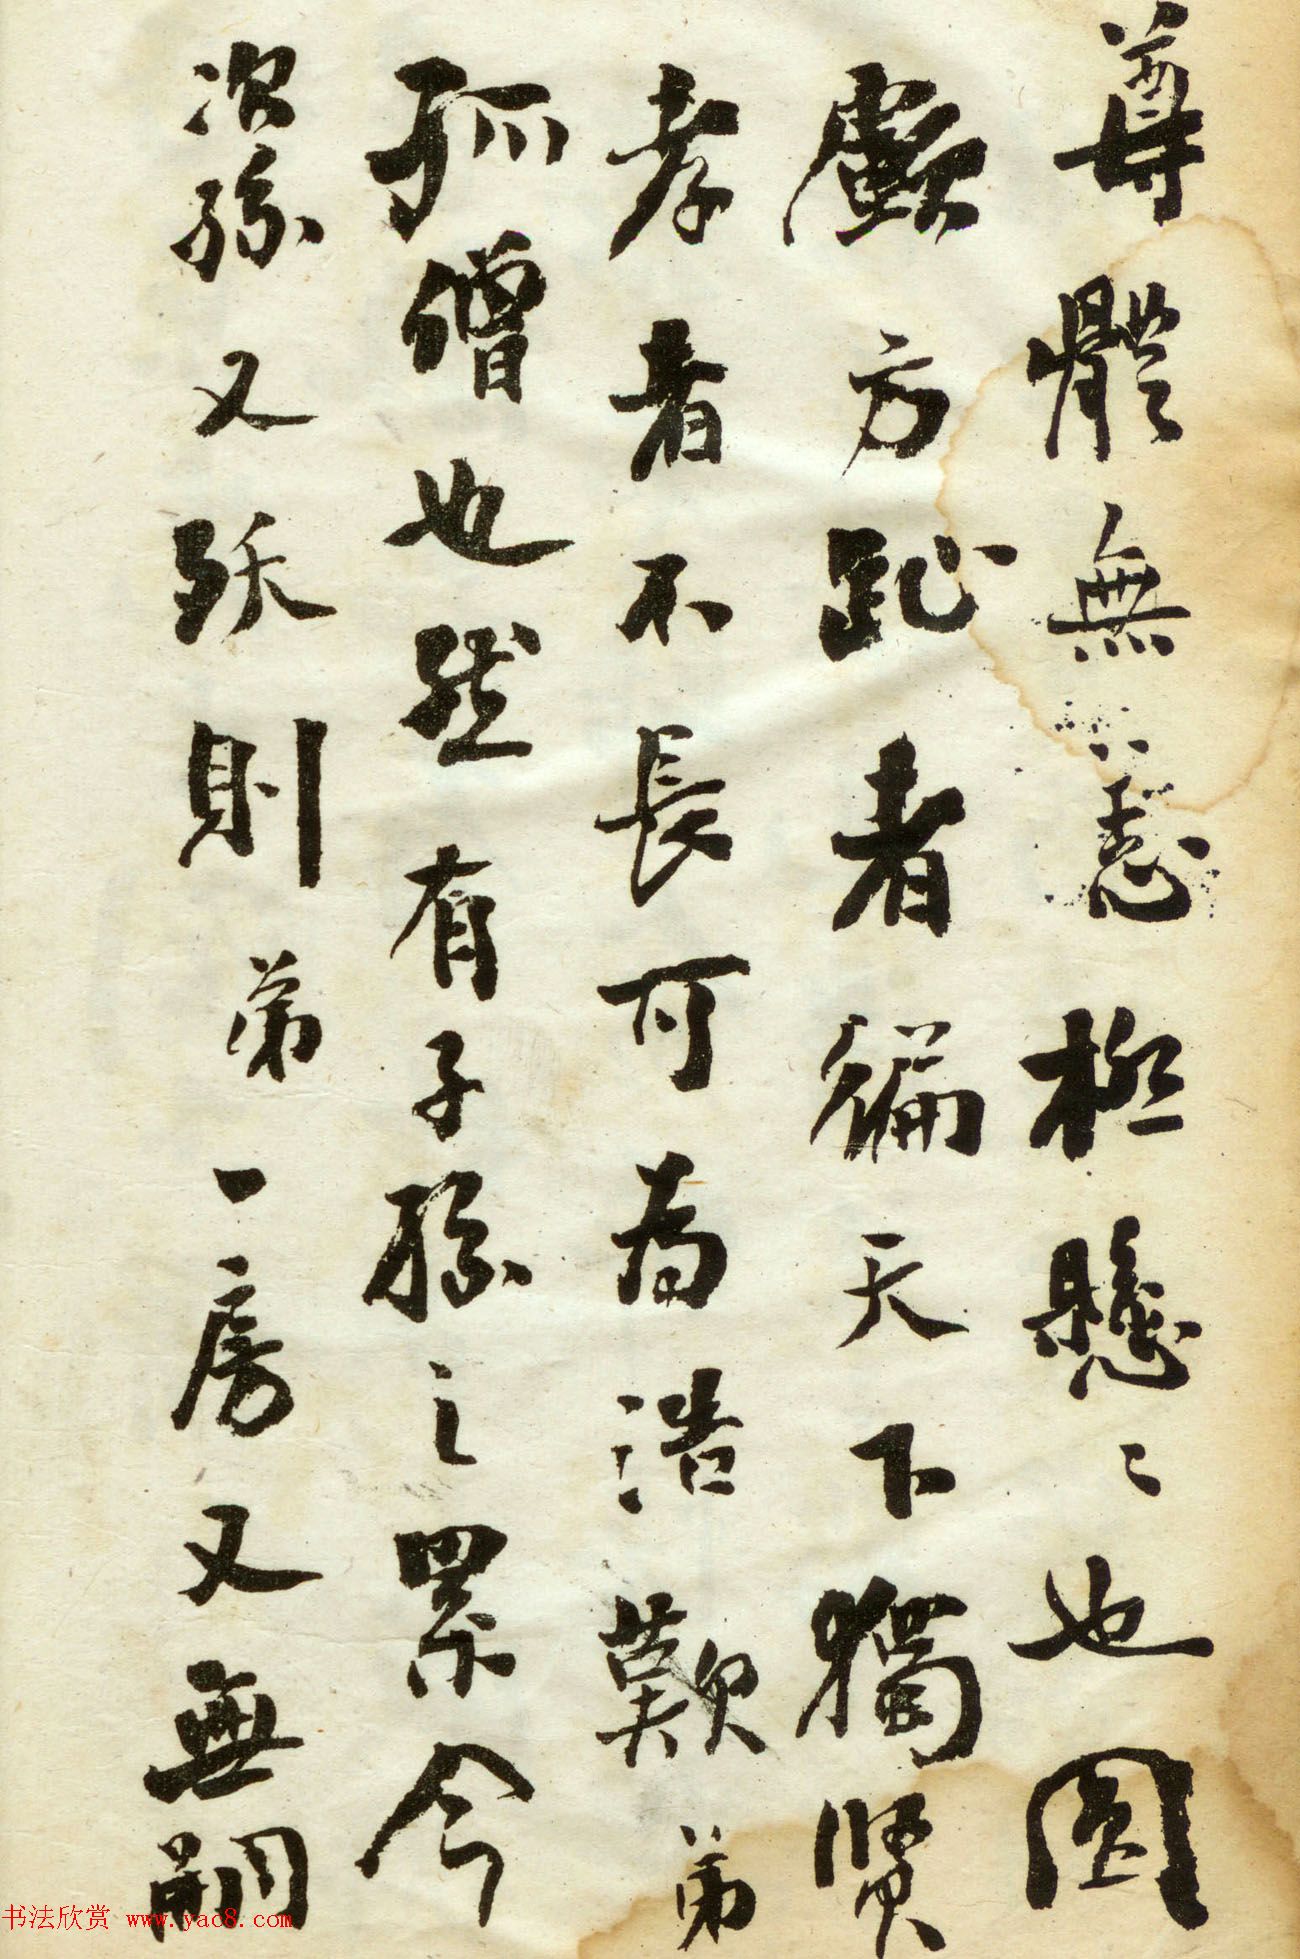 尊體無恙極懸〻也圓
顱方趾者徧天下獨賢
孝者不長可為浩歎弟
孤僧也然有子孫之累今
次孫又殀則弟一房又無嗣
书法欣赏 www.yac8.com